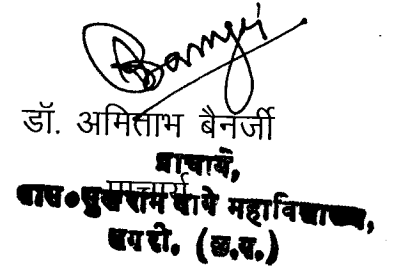 डॉ. अमिताभ बैनर्जी
प्राचार्य,
प्राचार्य
शास॰ सुखराम नागे महाविद्यालय,
नगरी. (छ.ग.)